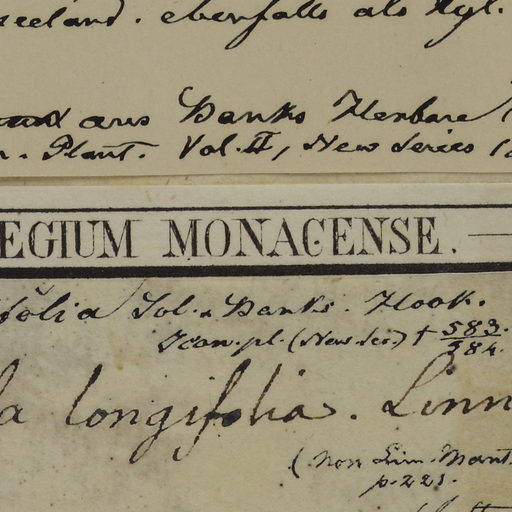 eeland. ebenfalls als Syl.
aus Banks Herbare
n. Plant. Vol. II, New Series
EGIUM MONACENSE.
folia Sol. Banks. Hook.
Icon. pl. (New Ser) t 583.
584.
la longifolia. Linn
(non Lin. Mant.
p. 221.